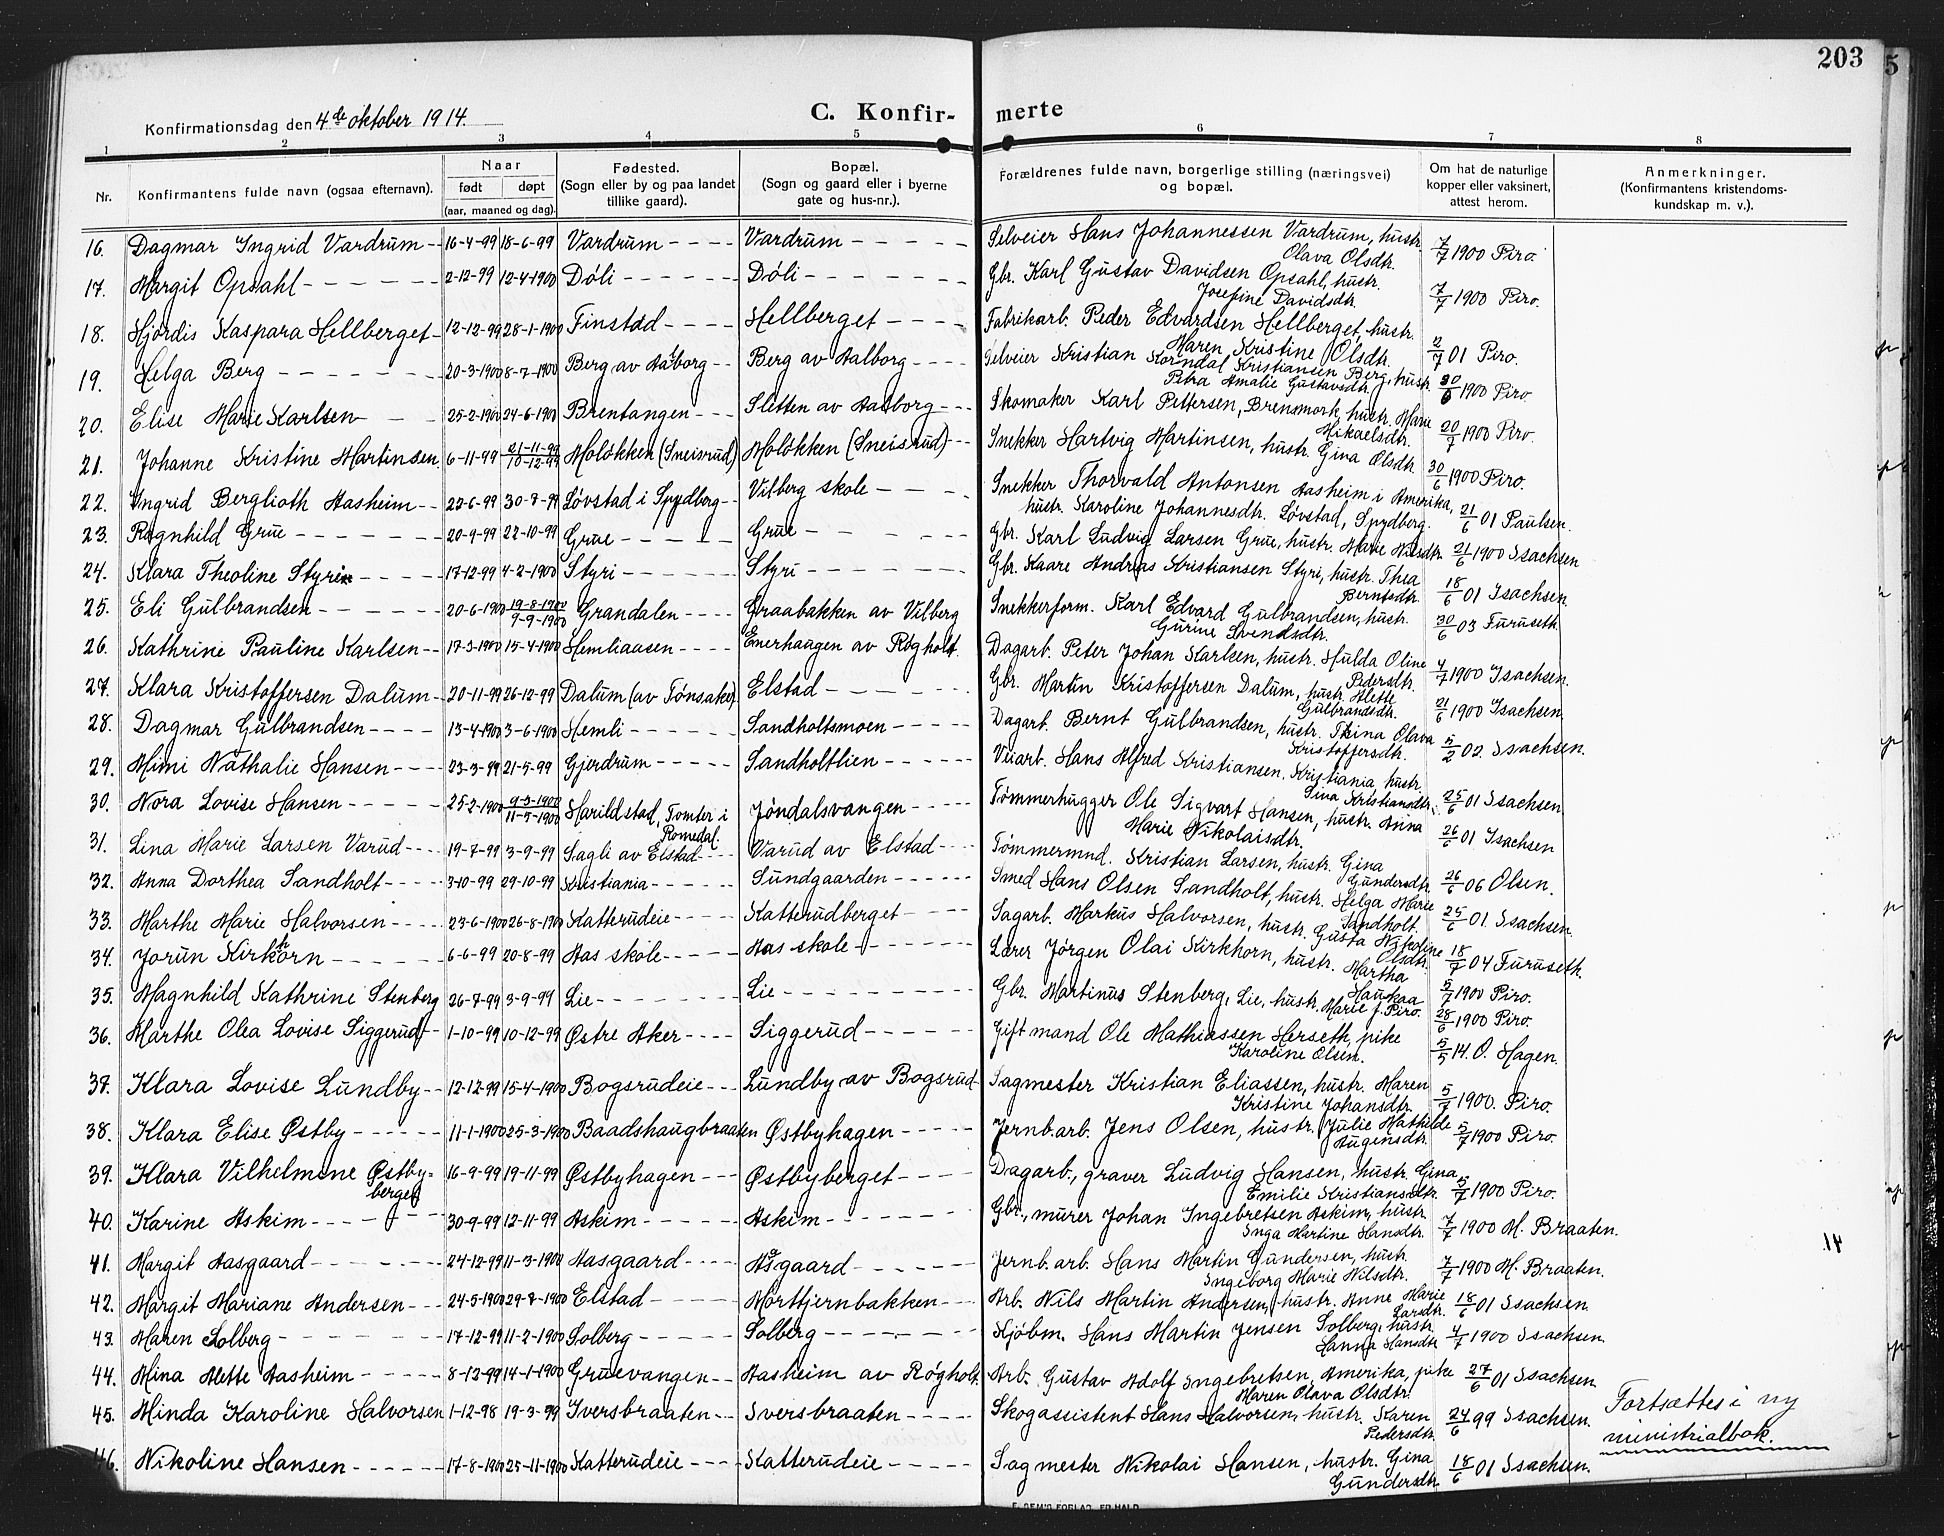 203
5
Konfirmationsdag den 4de oktober 1914.
C. Konfir- merte
1 2 3 4 5 6 7 8
Nr.
Konfirmantens fulde navn (ogsaa efternavn).
Naar
født døpt
(aar, maaned og dag).
Fødested.
(Sogn eller by og paa landet
tillike gaard).
Bopæl.
(Sogn og gaard eller i byerne
gate og hus-nr.).
Forældrenes fulde navn, borgerlige stilling (næringsvei)
og bopæl.
Om hat de naturlige
kopper eller vaksinert,
attest herom.
Anmerkninger.
(Konfirmantens kristendoms-
kundskap m. v.).
16. Dagmar Ingrid Vardrum 16-4-99 18-6-99 Vardrum Vardrum Selveier Hans Johannessen Vardrum, hustr. 7/7 1900 Piro.
Olava Olsdtr.
17. Margit Opsahl 2-12-99 12-4-1900 Døli Døli Gbr. Karl Gustav Davidsen Opsahl, hustr. 7/7 1900 Piro.
Josefine Davidsdtr.
18. Hjørdis Kaspara Hellberget 12-12-99 28-1-1900 Finstad Hellberget Fabrikarb. Peder Edvardsen Hellberget, hustr. 2/7 01 Piro.
Maren Kristine Olsdtr.
19. Helga Berg 20-3-1900 8-7-1900 Berg av Aalborg Berg av Aalborg Selveier Kristian Korndal Kristiansen Berg, hustr. 30/6 1900 Piro
Petra Amalie Gustavsdtr.
20. Elise Marie Karlsen 25-2-1900 24-6-1900 Brentangen Sletten av Aalborg Skomaker Karl Pettersen, Brensmork, hustr. Marie 20/7 1900 Piro.
Mikaelsdtr.
21. Johanne Kristine Martinsen 6-11-99 21-11-99 / 10-12-99 Moløkken (Sneisrud) Moløkken (Sneisrud) Snekker Hartvig Martinsen, hustr. Gina Olsdtr. 30/6 1900 Piro.
22. Ingrid Berglioth Aasheim 22-6-99 30-7-99 Løvstad i Spydberg Vilberg skole Snekker Thorvald Antonsen Aasheim i Amerika, 21/6 01 Paulsen.
hustr. Karoline Johannesdtr. Løvstad, Spydberg.
23. Ragnhild Grue 20-9-99 22-10-99 Grue Grue Gbr. Karl Ludvig Larsen Grue, hustr. Marie Nilsdtr. 21/6 1900 Isachsen
24. Klara Theoline Styri 17-12-99 4-2-1900 Styri Styri Gbr. Kaare Andreas Kristiansen Styri, hustr. Thea 18/6 01 Isachsen.
Berntsdtr.
25. Eli Gulbrandsen 20-6-1900 19-8-1900 / 9-9-1900 Grandalen Graabakken av Vilberg Snekkerform. Karl Edvard Gulbrandsen, hustr. 30/6 03 Furuseth.
Gurine Svendsdtr.
26. Kathrine Pauline Karlsen 17-3-1900 15-4-1900 Hemliaasen Enerhaugen av Røgholt. Dagarb. Peter Johan Karlsen, hustr. Hulda Oline 4/7 1900 Isachsen.
Pedersdtr.
27. Klara Kristoffersen Dalum 20-11-99 26-12-99 Dalum (av Tønsaker) Elstad Gbr. Martin Kristoffersen Dalum, hustr. Alette 21/6 1900 Isachsen.
Gulbrandsdtr.
28. Dagmar Gulbrandsen 13-4-1900 3-6-1900 Hemli Sandholtsmoen Dagarb. Bernt Gulbrandsen, hustr. Trina Olava 5/2 02. Isachsen.
Kristoffersdtr.
29. Mimi Nathalie Hansen 23-3-99 21-5-99 Gjerdrum Sandholtlien Veiarb. Hans Alfred Kristiansen, Kristiania hustr.
Lina Kristiansdtr. 25/6 01 Isachsen
30. Nora Lovise Hansen 25-2-1900 9-3-1900 / 11-5-1900 Harildstad, Tomter i Jøndalsvangen Tømmerhugger Ole Sigvart Hansen, hustr. Anna 26/6 01 Isachsen
Romedal. Marie Nikolaisdtr.
31. Lina Marie Larsen Varud 19-7-99 3-9-99 Sagli av Elstad Varud av Elstad Tømmermnd. Kristian Larsen, hustr. Gina 26/6 06 Olsen.
Gundersdtr.
32. Anna Dorthea Sandholt 3-10-99 29-10-99 Kristiania Sundgaarden Smed Hans Olsen Sandholt, hustr. Helga Marie 25/6 01. Isachsen.
Sandholt.
33. Marthe Marie Halvorsen 23-6-1900 26-8-1900 Katterudeie Katterudberget Sagarb. Markus Halvorsen, hustr. Gusta Nikoline 18/7 04 Furuseth.
Olsdtr.
34. Jorun Kirkhorn 6-6-99 20-8-99 Aas skole Aas skole Lærer Jørgen Olai Kirkhorn, hustr. Martha 5/7 1900 Piro.
Haukaa
35. Magnhild Kathrine Stenberg 26-7-99 3-9-99 Lie Lie Gbr. Martinus Stenberg, Lie, hustr. Marie f. Piro. 28/6 1900 Piro.
36. Marthe Olea Lovise Siggerud 1-10-99 10-12-99 Østre Aker Siggerud Gift mand Ole Mathiassen Herseth, pike 5/5 14. O. Hagen.
Karoline Olsen.
37. Klara Lovise Lundby 12-12-99 15-4-1900 Bogsrudeie Lundby av Bogsrud Sagmester Kristian Eliassen, hustr. Maren 5/7 1900. Piro.
Kristine Johansdtr.
38. Klara Elise Østby 11-1-1900 25-3-1900 Baadshaugbraaten Østbyhagen Jernb.arb. Jens Olsen, hustr. Julie Mathilde 5/7 1900 Piro.
Augensdtr.
39. Klara Vilhelmine Østby- 16-9-99 19-11-99 Østbyhagen Østbyberget Dagarb., graver Ludvig Hansen, hustr. Gina 5/7 1900 Piro.
berget Emilie Kristiansdtr.
40. Karine Askim 30-9-99 12-11-99 Askim Askim Gbr., murer Johan Ingebretsen Askim, hustr. 7/7 1900 M. Braaten.
Inga Martine Hansdtr.
41. Margit Aasgaard 24-12-99 11-3-1900 Aasgaard Aasgaard Jernb.arb. Hans Martin Gundersen, hustr. 7/7 1900 M. Braaten.
Ingeborg Marie Nilsdtr.
42. Margit Mariane Andersen 24-5-1900 29-7-1900 Elstad Morttjernbakken Arb. Nils Martin Andersen, hustr. Anne Marie 18/6 01 Isachsen.
Larsdtr.
43. Maren Solberg 17-12-99 11-2-1900 Solberg Solberg Kjøbm. Hans Martin Jensen Solberg, hustr. 4/7 1900 Isachsen.
Hanna Hansdtr.
44. Mina Alette Aasheim 8-12-99 14-1-1900 Gruevangen Aasheim av Røgholt. Arb. Gustav Adolf Ingebretsen, Amerika, pike 27/6 01 Isachsen.
Maren Olava Olsdtr.
45. Minda Karoline Halvorsen 1-12-98 19-3-99 Iversbraaten Iversbraaten Skogassistent Hans Halvorsen, hustr. Karen 24/6 99 Isachsen.
Pedersdtr.
46. Nikoline Hansen 17-8-1900 25-11-1900 Katterudeie Katterudeie Sagmester Nikolai Hansen, hustr. Gina 18/6 01 Isachsen.
Gundersdtr.
Fortsættes i ny
ministrialbok.